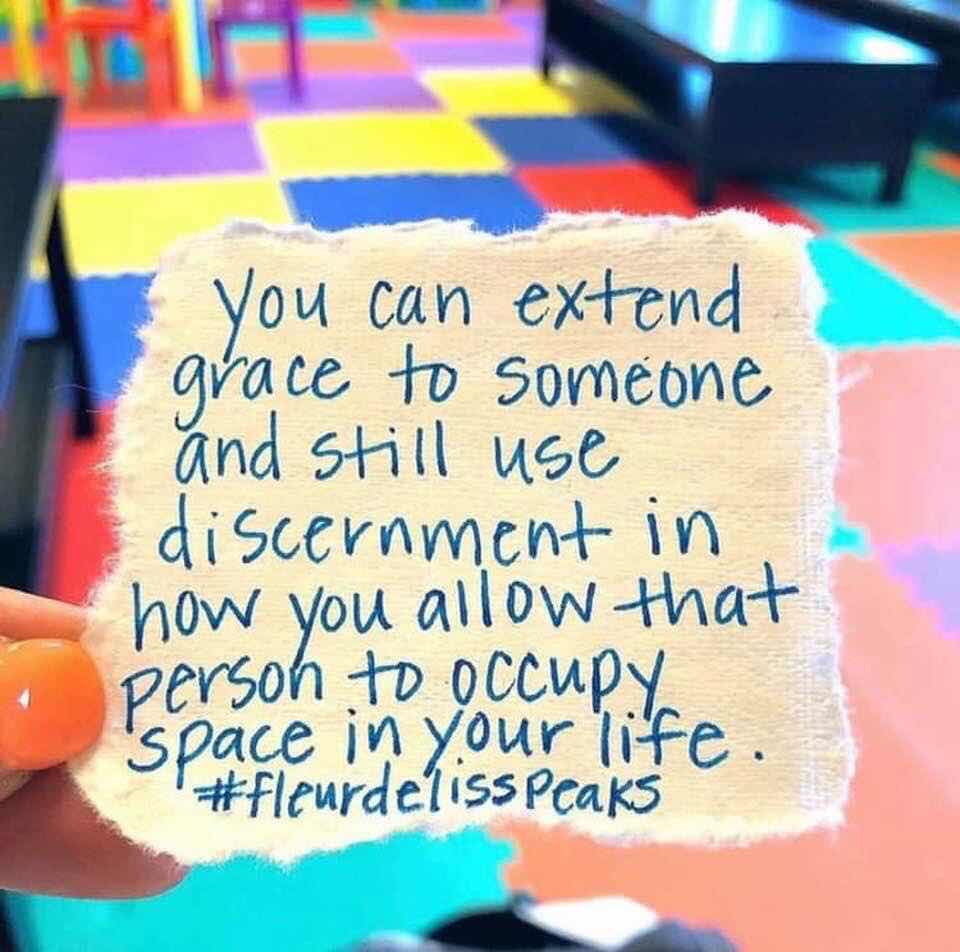 you can extend
grace to someone
and still use
discernment in
how you allow that
person to occupy
space in your life.
#fleurdelisspeaks